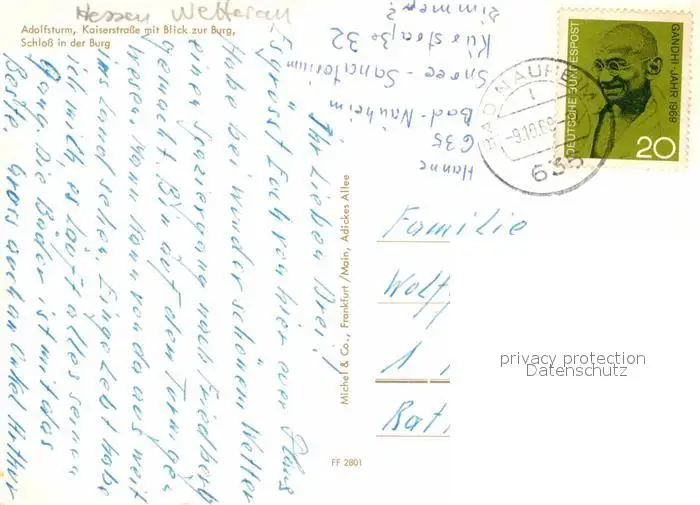 Hessen Wetterau
Adolfsturm, Kaiserstraße mit Blick zur Burg,
Schloß in der Burg
Ihr Lieben Drei!
Es grüsst Euch von hier aus Claus
Habe bei wunderschönem Wetter
einen Spaziergang nach Friedberg
gemacht. Bin auf dem Turm
gewesen. Man kann von da aus weit
ins Land sehen. Eingelebt habe
ich mich, es läuft alles seinen
Gang. Die Bäder ist mit das
Beste. Gruss auch an Onkel Arthur
Hanne
635
Bad-Nauheim
Spree-Sanatorium
Kurstraße 32
Zimmer 2
Michel & Co., Frankfurt/Main, Adickes Allee
FF 2801
BAD NAUHEIM
1
-9.10.69
635
DEUTSCHE BUNDESPOST
GANDHI-JAHR 1969
20
Familie
Wolf
1
Rat
privacy protection
Datenschutz